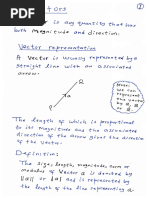 tors ①
tor is any quantity that has
both Magnitude and direction.
Vector representation
A Vector is usually represented by a
straight line with an associated
arrow:
Note:
we can
represent
the vector
The length of which is proportional
to its magnitude and the associated
direction of the arrow gives the direction
of the vector.
Definition:
The size, length, magnitude, norm or
modulus of Vector a is denoted by
||a|| or |a| and is represented by
the length of the line representing a